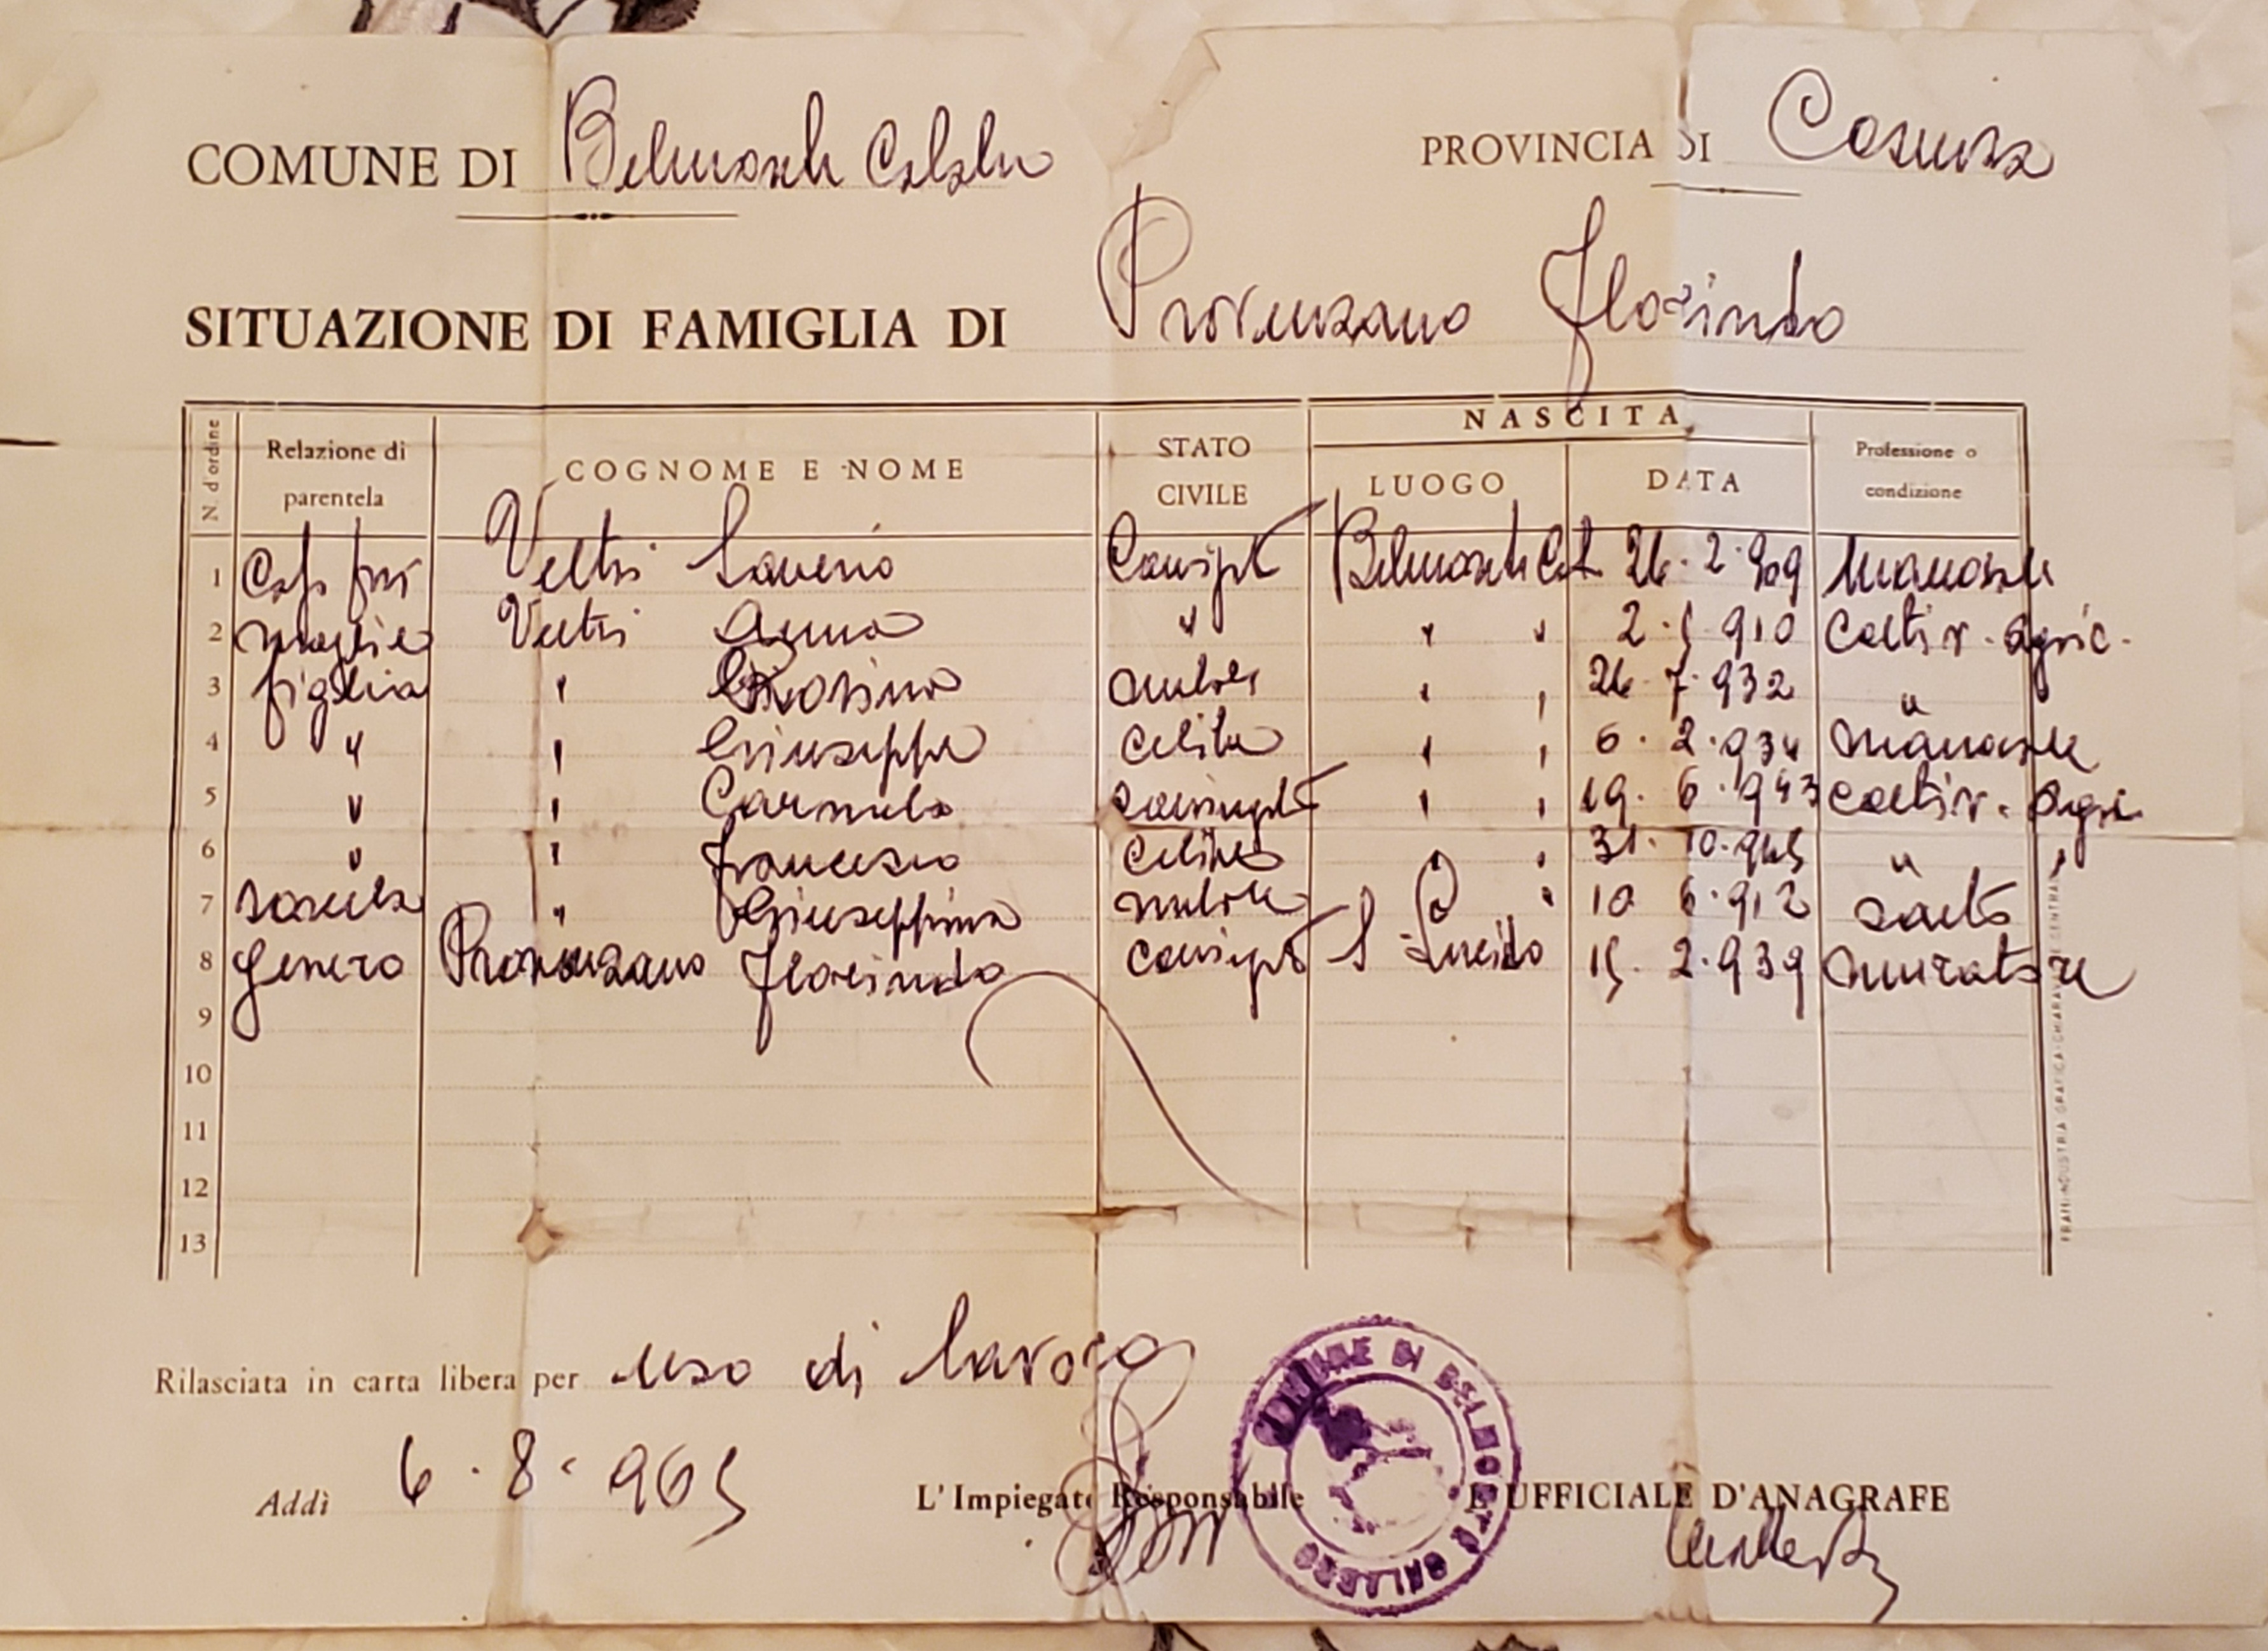 COMUNE DI Belmonte Calabro PROVINCIA DI Cosenza
SITUAZIONE DI FAMIGLIA DI Provenzano Florindo
N. d'ordine Relazione di parentela COGNOME E NOME STATO CIVILE NASCITA LUOGO DATA Professione o condizione
1 Capo fam Veltri Saverio Coniugt Belmonte Cal 26. 2. 909 Manovale
2 moglie Veltri Anna " " " 2. 5 910 Coltiv. agric.
3 figlia " Rosina nubile " " 26. 7. 932 "
4 " " Giuseppe celibe " " 6. 2. 934 manovale
5 " " Carmela coniugt " " 19. 6. 943 coltiv. agri.
6 " " Francesco celibe " " 31. 10. 945 " "
7 sorella " Giuseppina nubile " " 10 6. 912 sarta
8 genero Provenzano Florindo coniugt S Lucido 15. 2. 939 muratore
9
10
11
12
13
FRAMA-INDUSTRIA GRAFICA-CHIARAVALLE CENTRALE
Rilasciata in carta libera per uso di lavoro
Addì 6. 8. 965 L'Impiegato Responsabile L'UFFICIALE D'ANAGRAFE
COMUNE DI BELMONTE CALABRO